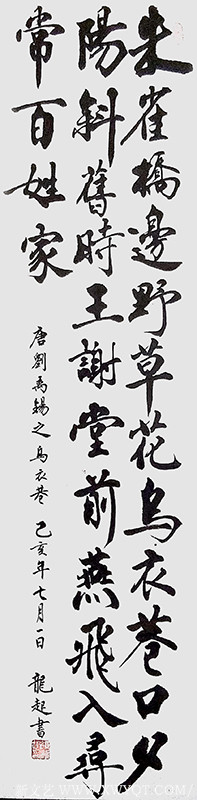 朱雀橋邊野草花烏衣巷口夕
陽斜舊時王謝堂前燕飛入尋
常百姓家
唐劉禹錫之烏衣巷 乙亥年七月一日 龍起書